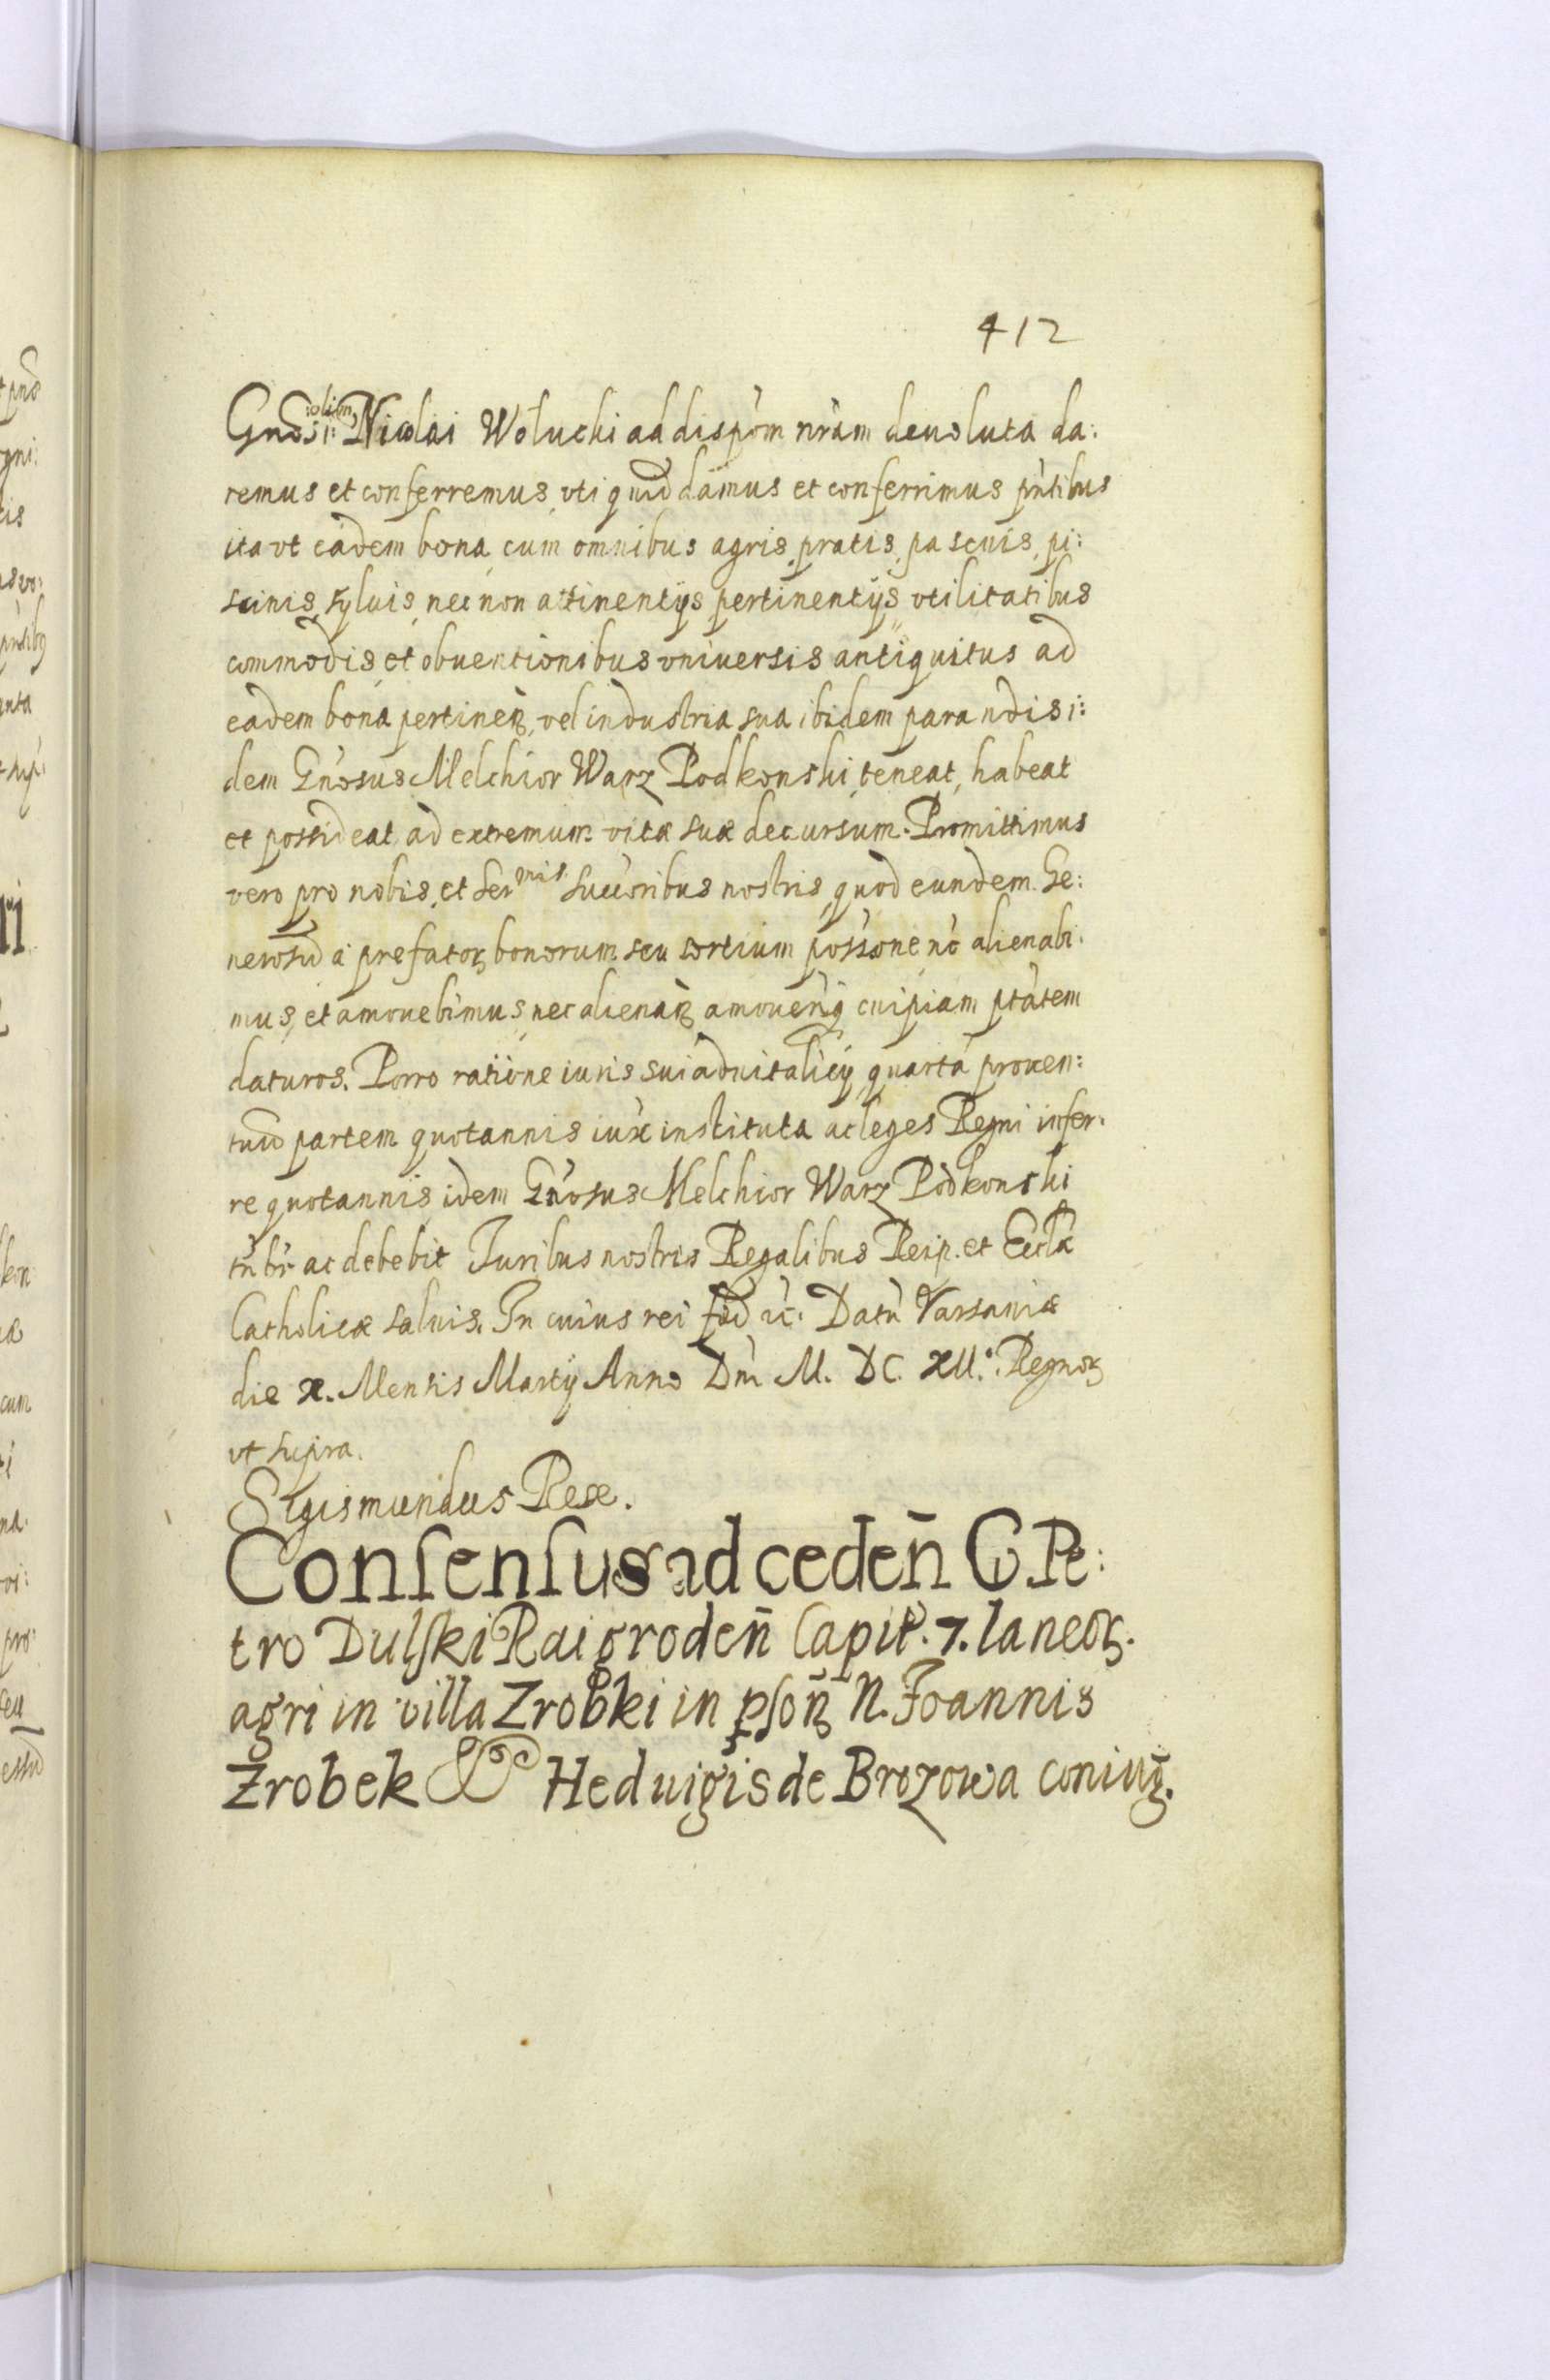 412
Gnosi: olim Nicolai Wołucki ad dispom nram deuoluta da:
remus et conferremus, vti quid damus et conferrimus pntibus
ita vt eadem bona, cum omnibus agris, pratis, pascuis, pi:
scinis, syluis, nec non attinentijs pertinentijs, vtilitatibus
commodis, et obuentionibus vniuersis antiquitus ad
eadem bona pertinen, vel industria sua ibidem parandis i:
dem Gnosus Melchior Warz Podkonski, teneat, habeat
et possideat, ad extremum vitæ suæ decursum. Promittimus
vero pro nobis, et Sermis Succoribus nostris, quod eundem Ge:
nerosū a prefatoꝝ bonorum seu sortium possione nō alienabi:
mus, et amouebimus, nec alienan amouenq cuipiam ptatem
daturos. Porro ratione iuris sui aduitalicij, quartā prouen:
tuū partem quotannis iux instituta ac leges Regni infer:
re quotannis idem Gnosus Melchior Warz Podkonski
tnbr ac debebit Juribus nostris Regalibus Reip. et Eccla
Catholicæ saluis. In cuius rei fid ꝛc. Datū Varsauiæ
die x. Mensis Martij Anno Dni M. DC. XII. Regnoꝝ
vt supra.
Sigismundus Rex.
Consensus ad cedeñ G. Pe:
tro Dulſki Raigrodeñ Capit. 7. laneoꝝ.
agri in villa Zrobki in pſoñ N. Joannis
Zrobek & Heduigis de Brozowa coniug.